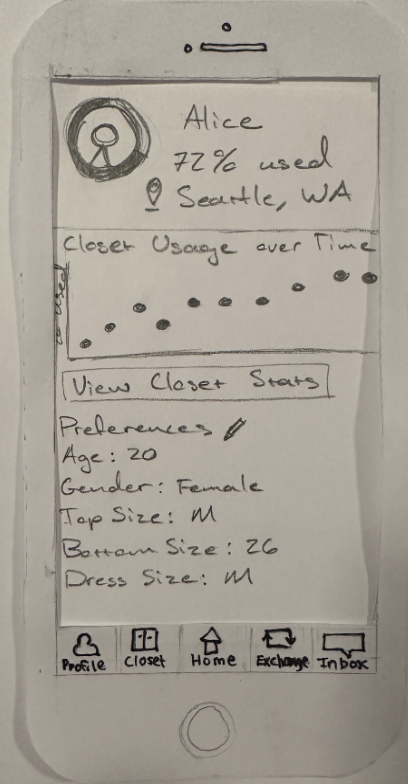 Alice
72% used
Seattle, WA
Closet Usage over Time
% used
View Closet Stats
Preferences
Age: 20
Gender: Female
Top Size: M
Bottom Size: 26
Dress Size: M
Profile Closet Home Exchange Inbox